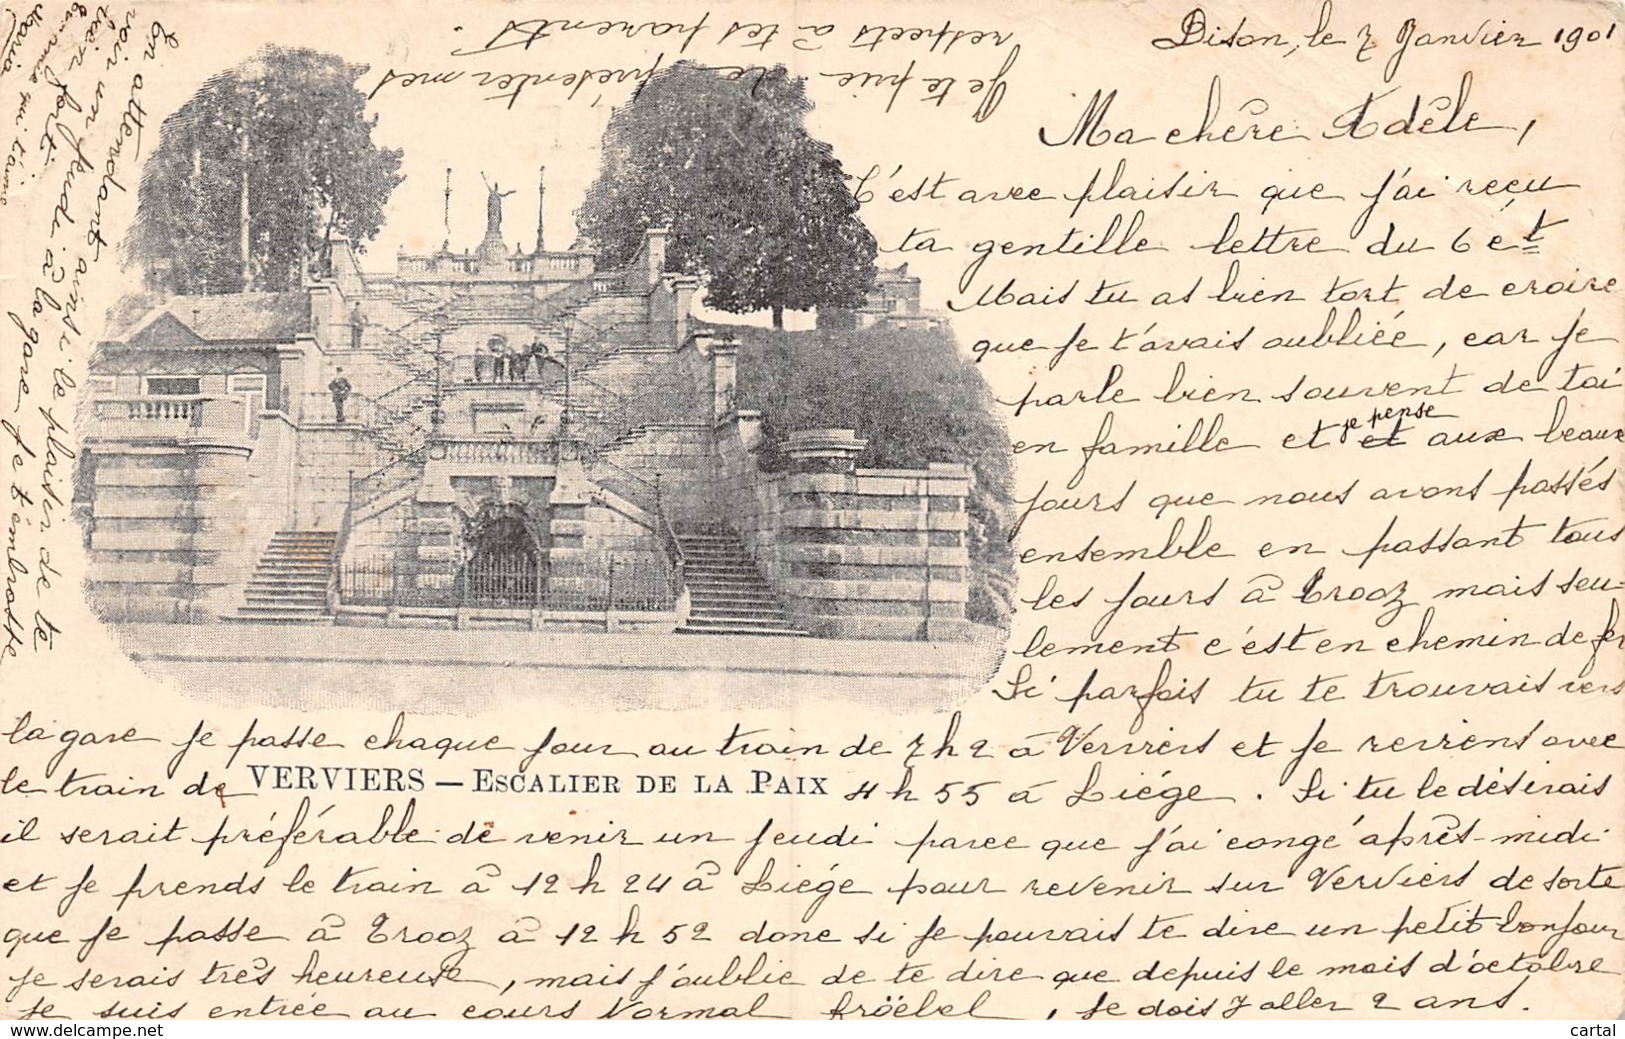 Dison, le 7 Janvier 1901
Ma chère Adèle,
C'est avec plaisir que j'ai reçu
ta gentille lettre du 6 ct
Mais tu as bien tort de croire
que je t'avais oubliée, car je
parle bien souvent de toi
en famille et je pense et aux beaux
jours que nous avons passés
ensemble en passant tous
les jours à Trooz mais seu-
lement c'est en chemin de fer
Si parfois tu te trouvais vers
la gare je passe chaque jour au train de 7 h 2 à Verviers et je reviens avec
le train de 4 h 55 à Liége. Si tu le désirais
VERVIERS — ESCALIER DE LA PAIX
il serait préférable de venir un jeudi parce que j'ai congé après-midi
et je prends le train à 12 h 24 à Liége pour revenir sur Verviers de sorte
que je passe à Trooz à 12 h 52 donc si je pouvais te dire un petit bonjour
je serais très heureuse, mais j'oublie de te dire que depuis le mois d'octobre
je suis entrée au cours Normal fröebel, je dois y aller 2 ans.
En attendant ainsi le plaisir de te
voir un jeudi à la gare je t'embrasse
bien fort.
amie qui t'aime
Maria
Je te prie de présenter mes
respects à tes parents.
cartal